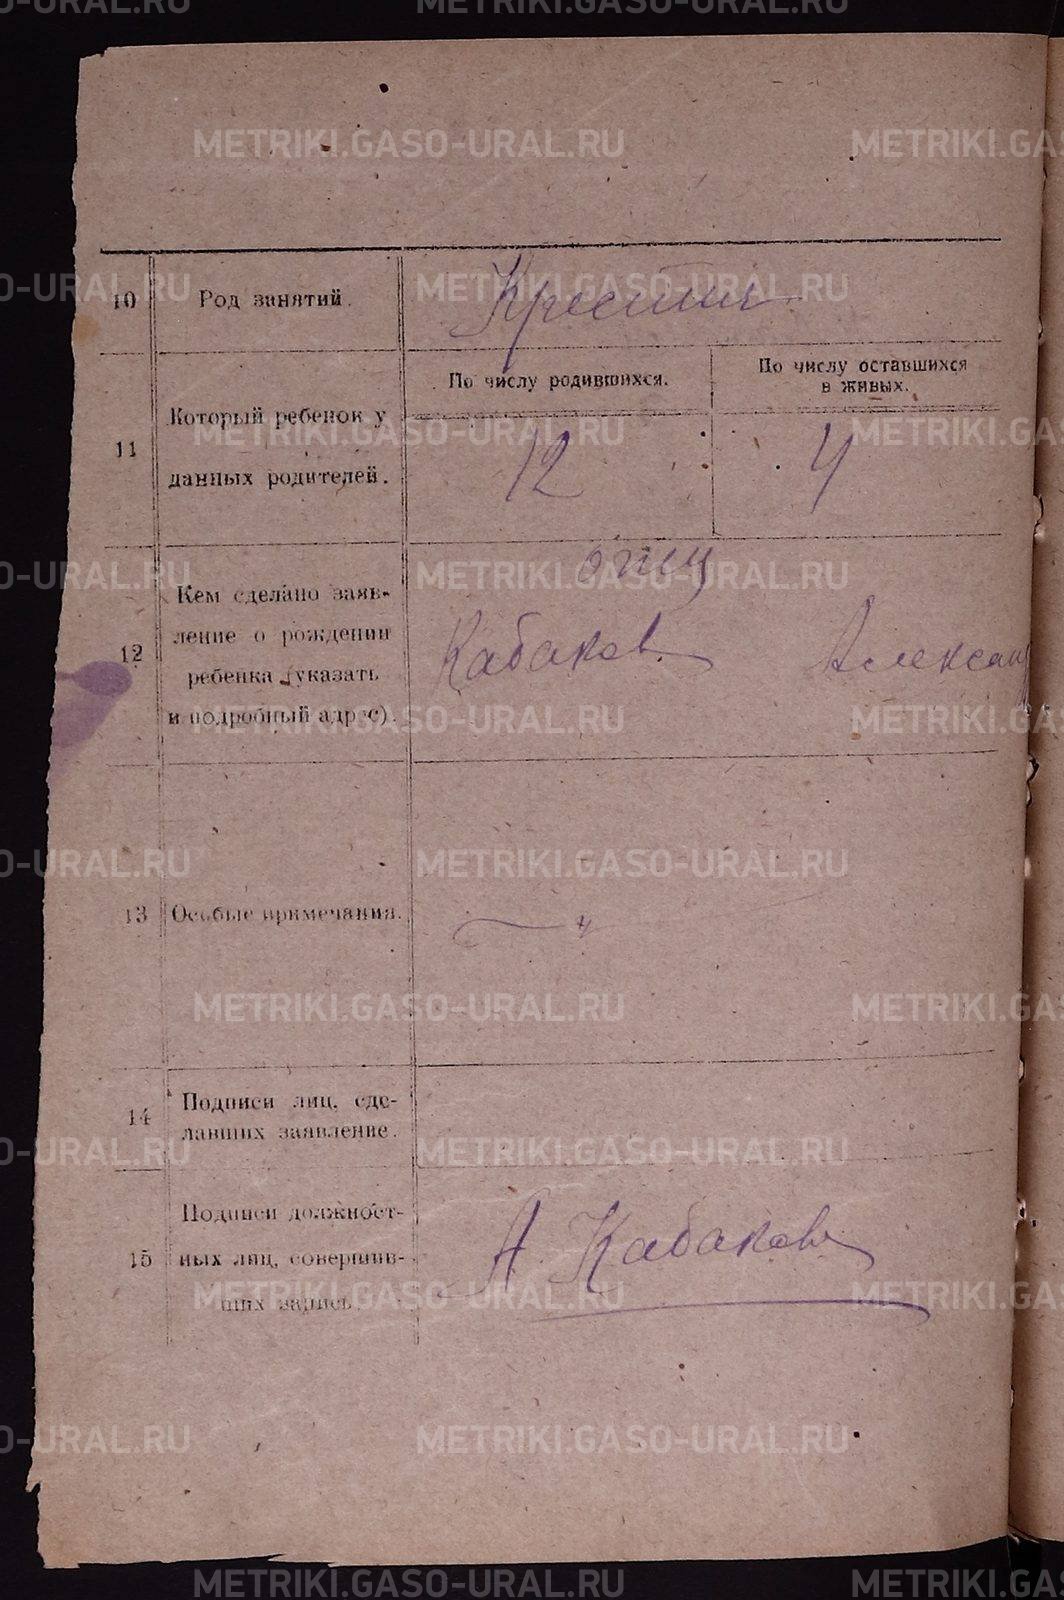 10 Род занятий. Крестьян
11 Который ребенок у данных родителей.
По числу родившихся.
По числу оставшихся
в живых.
12
4
12 Кем сделано заяв-
ление о рождении
ребенка (указать
и подробный адрес).
отец
Кабаков Александ
13 Особые примечания.
14 Подписи лиц, сде-
лавших заявление.
15 Подписи должност-
ных лиц, совершив-
ших запись.
А. Кабаков
METRIKI.GASO-URAL.RU